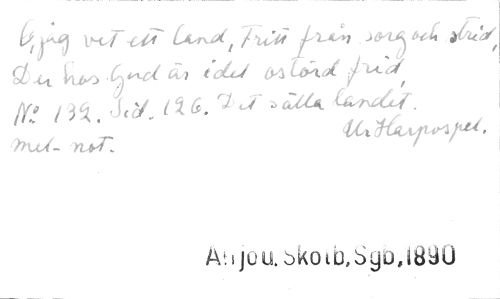 O, jag vet ett land, Fritt från sorg och strid,
Der hos Gud är idel ostörd frid,
No 132. Sid. 126. Det sälla landet.
Ur Harpospel.
mel- not.
Anjou. Skolb, Sgb, 1890